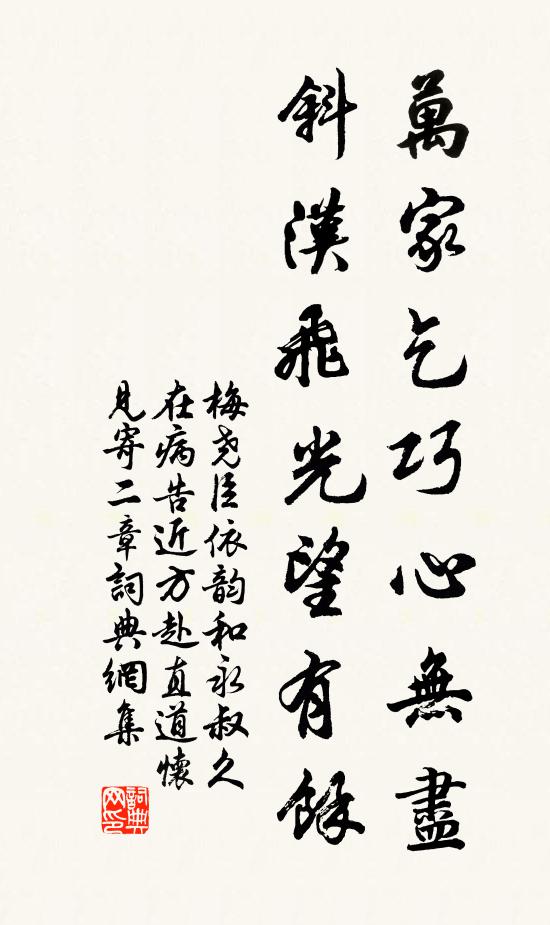 萬家乞巧心無盡
斜漢飛光望有餘
梅堯臣依韵和永叔久
在病告近方赴直道懷
見寄二章詞典網集
詞典网印